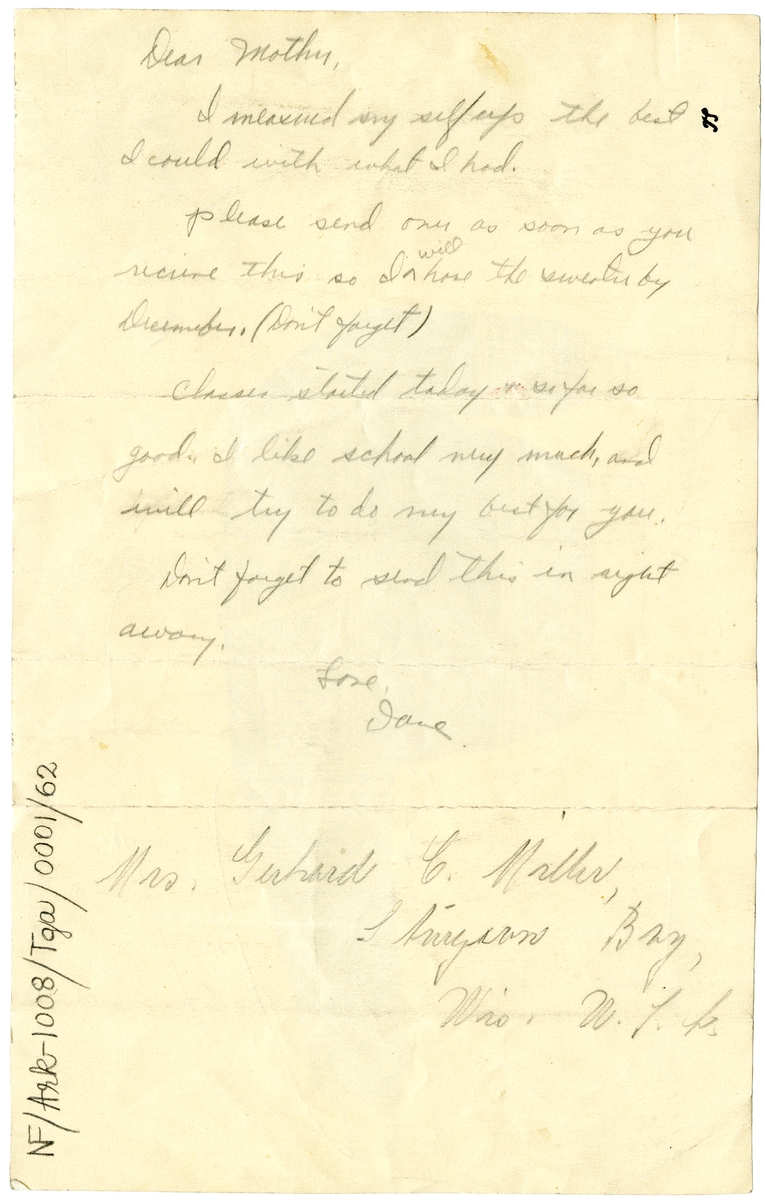 Dear Mother,
I measured my self up the best
I could with what I had.
please send one as soon as you
will
recieve this so I have the sweater by
December. (Don't forget)
Classes started today & so far so
good. I like school very much, and
will try to do my best for you.
Don't forget to send this in right
away.
Love,
Dave.
Mrs. Gerhard C. Miller,
Sturgeon Bay,
Wis. U.S.A.
NF/Ark-1008/Tga/0001/62